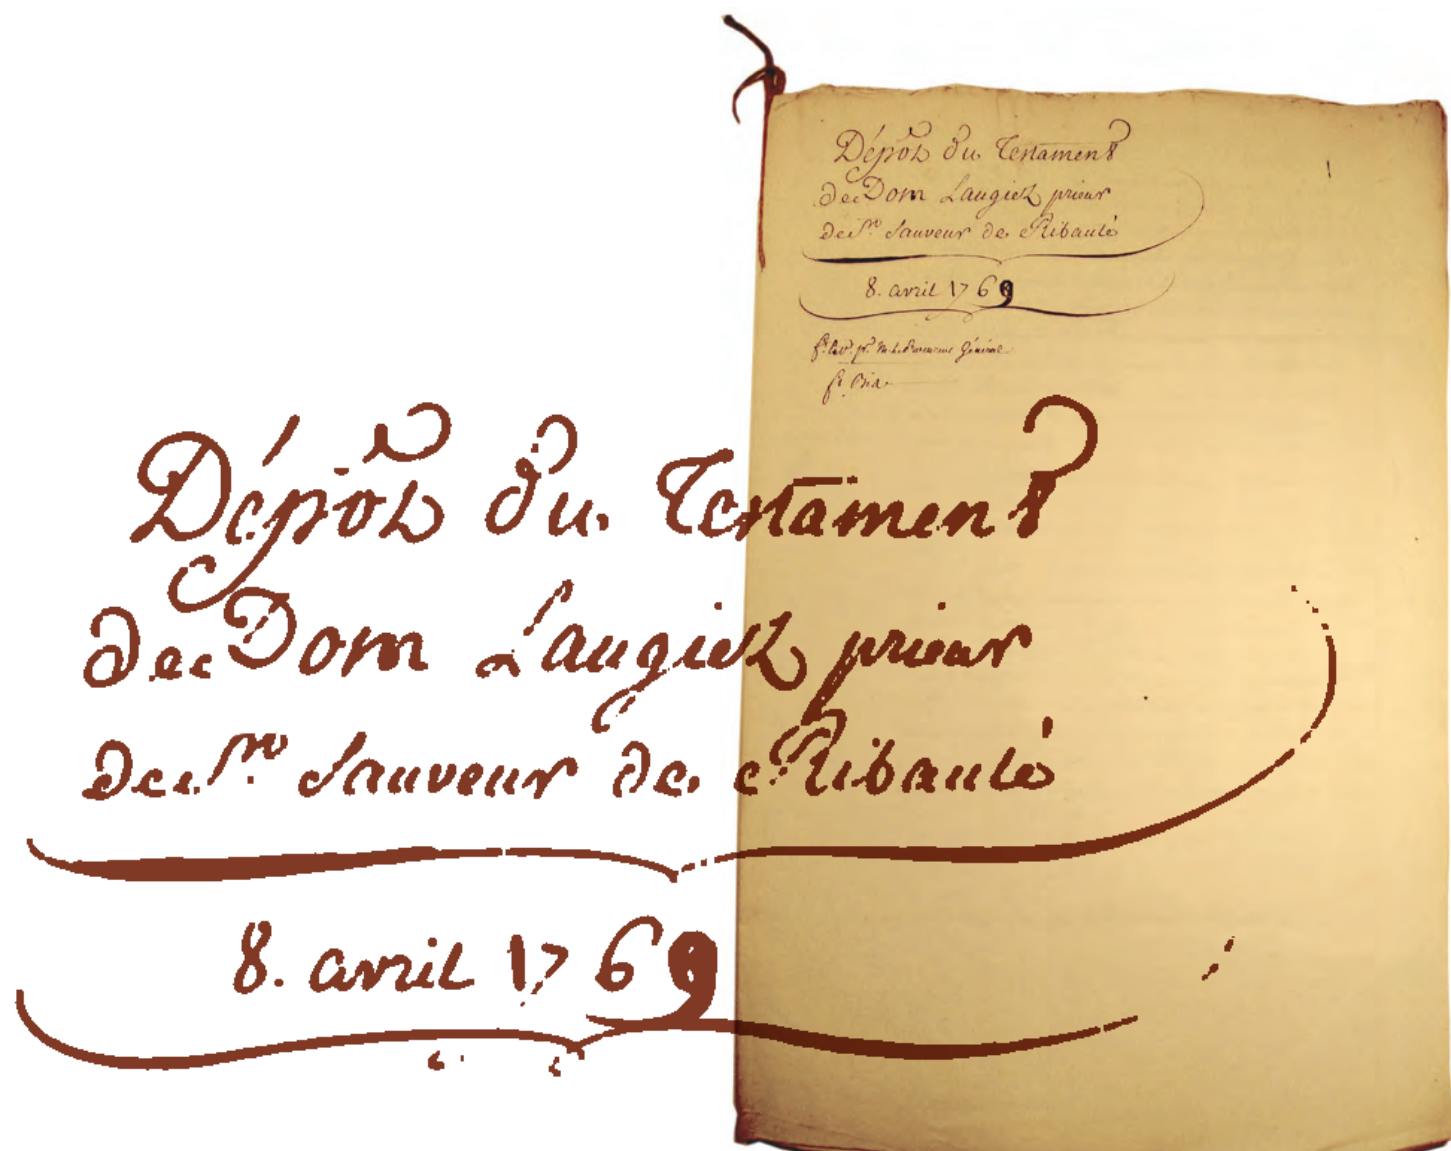 Dépôt du Testament
de Dom Laugier prieur
de St Sauveur de Ribauté
8. avril 1769
Général
Dépôt du Testament
de Dom Laugier prieur
de Sauveur de Ribauté
8. avril 1769